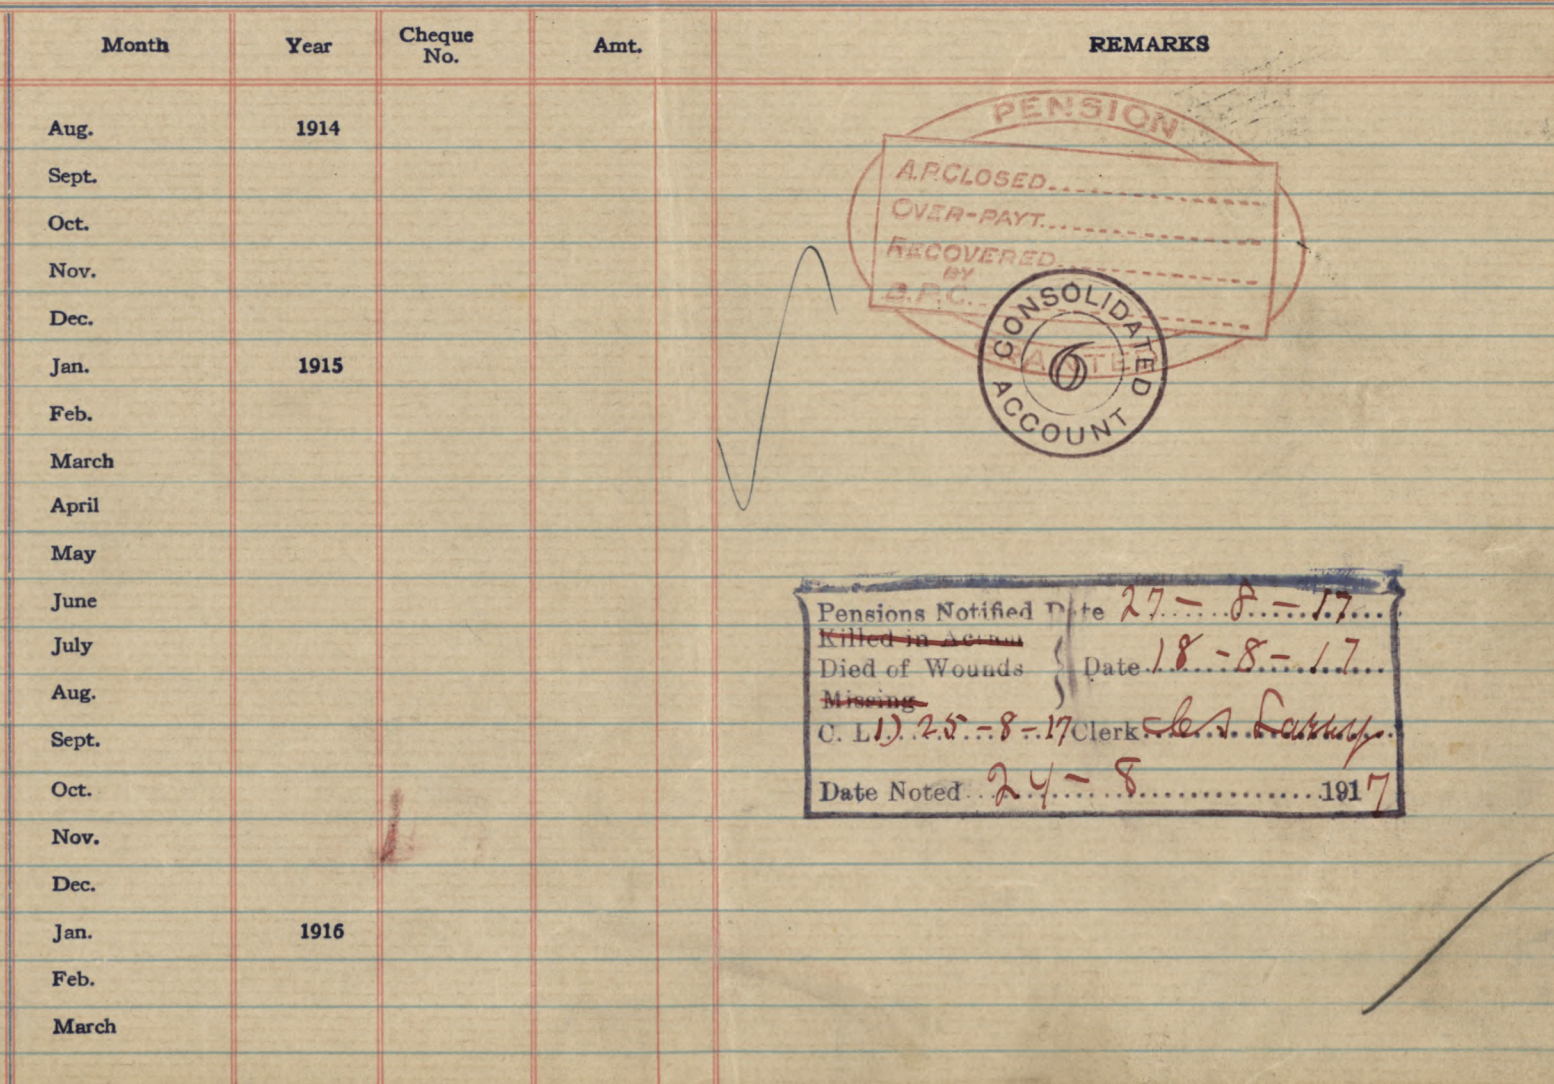 Month Year Cheque No. Amt. REMARKS
Aug. 1914
Sept.
Oct.
Nov.
Dec.
Jan. 1915
Feb.
March
April
May
June
July
Aug.
Sept.
Oct.
Nov.
Dec.
Jan. 1916
Feb.
March
PENSION
A.P. CLOSED
OVER-PAYT.
RECOVERED
BY
B.P.C.
CONSOLIDATED
6
ACCOUNT
Pensions Notified Date 27-8-17
Killed in Action
Died of Wounds Date 18-8-17
Missing
C. L. 25-8-17 Clerk
Date Noted 24-8 1917